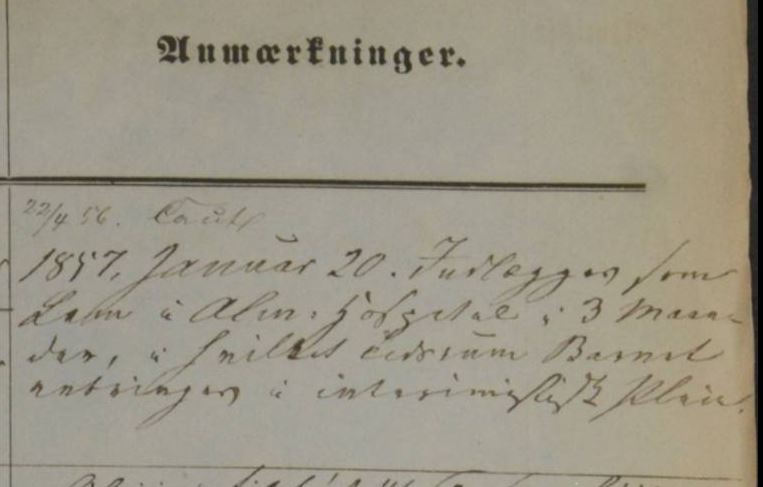 Anmærkninger.
22/4 56.
1857, Januar 20. Indlægges som
Lem i Alm: Hospital i 3 Maane-
der, i hvilket Tidsrum Barnet
anbringes i interimistisk Pleie.